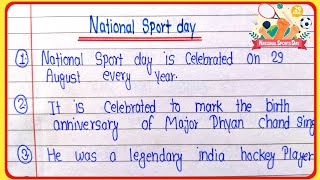 National Sport day
NATIONAL SPORTS DAY
① National Sport day is Celebrated on 29
August every year.
② It is Celebrated to mark the birth
anniversary of Major Dhyan chand Sing
③ He was a legendary india hockey Player